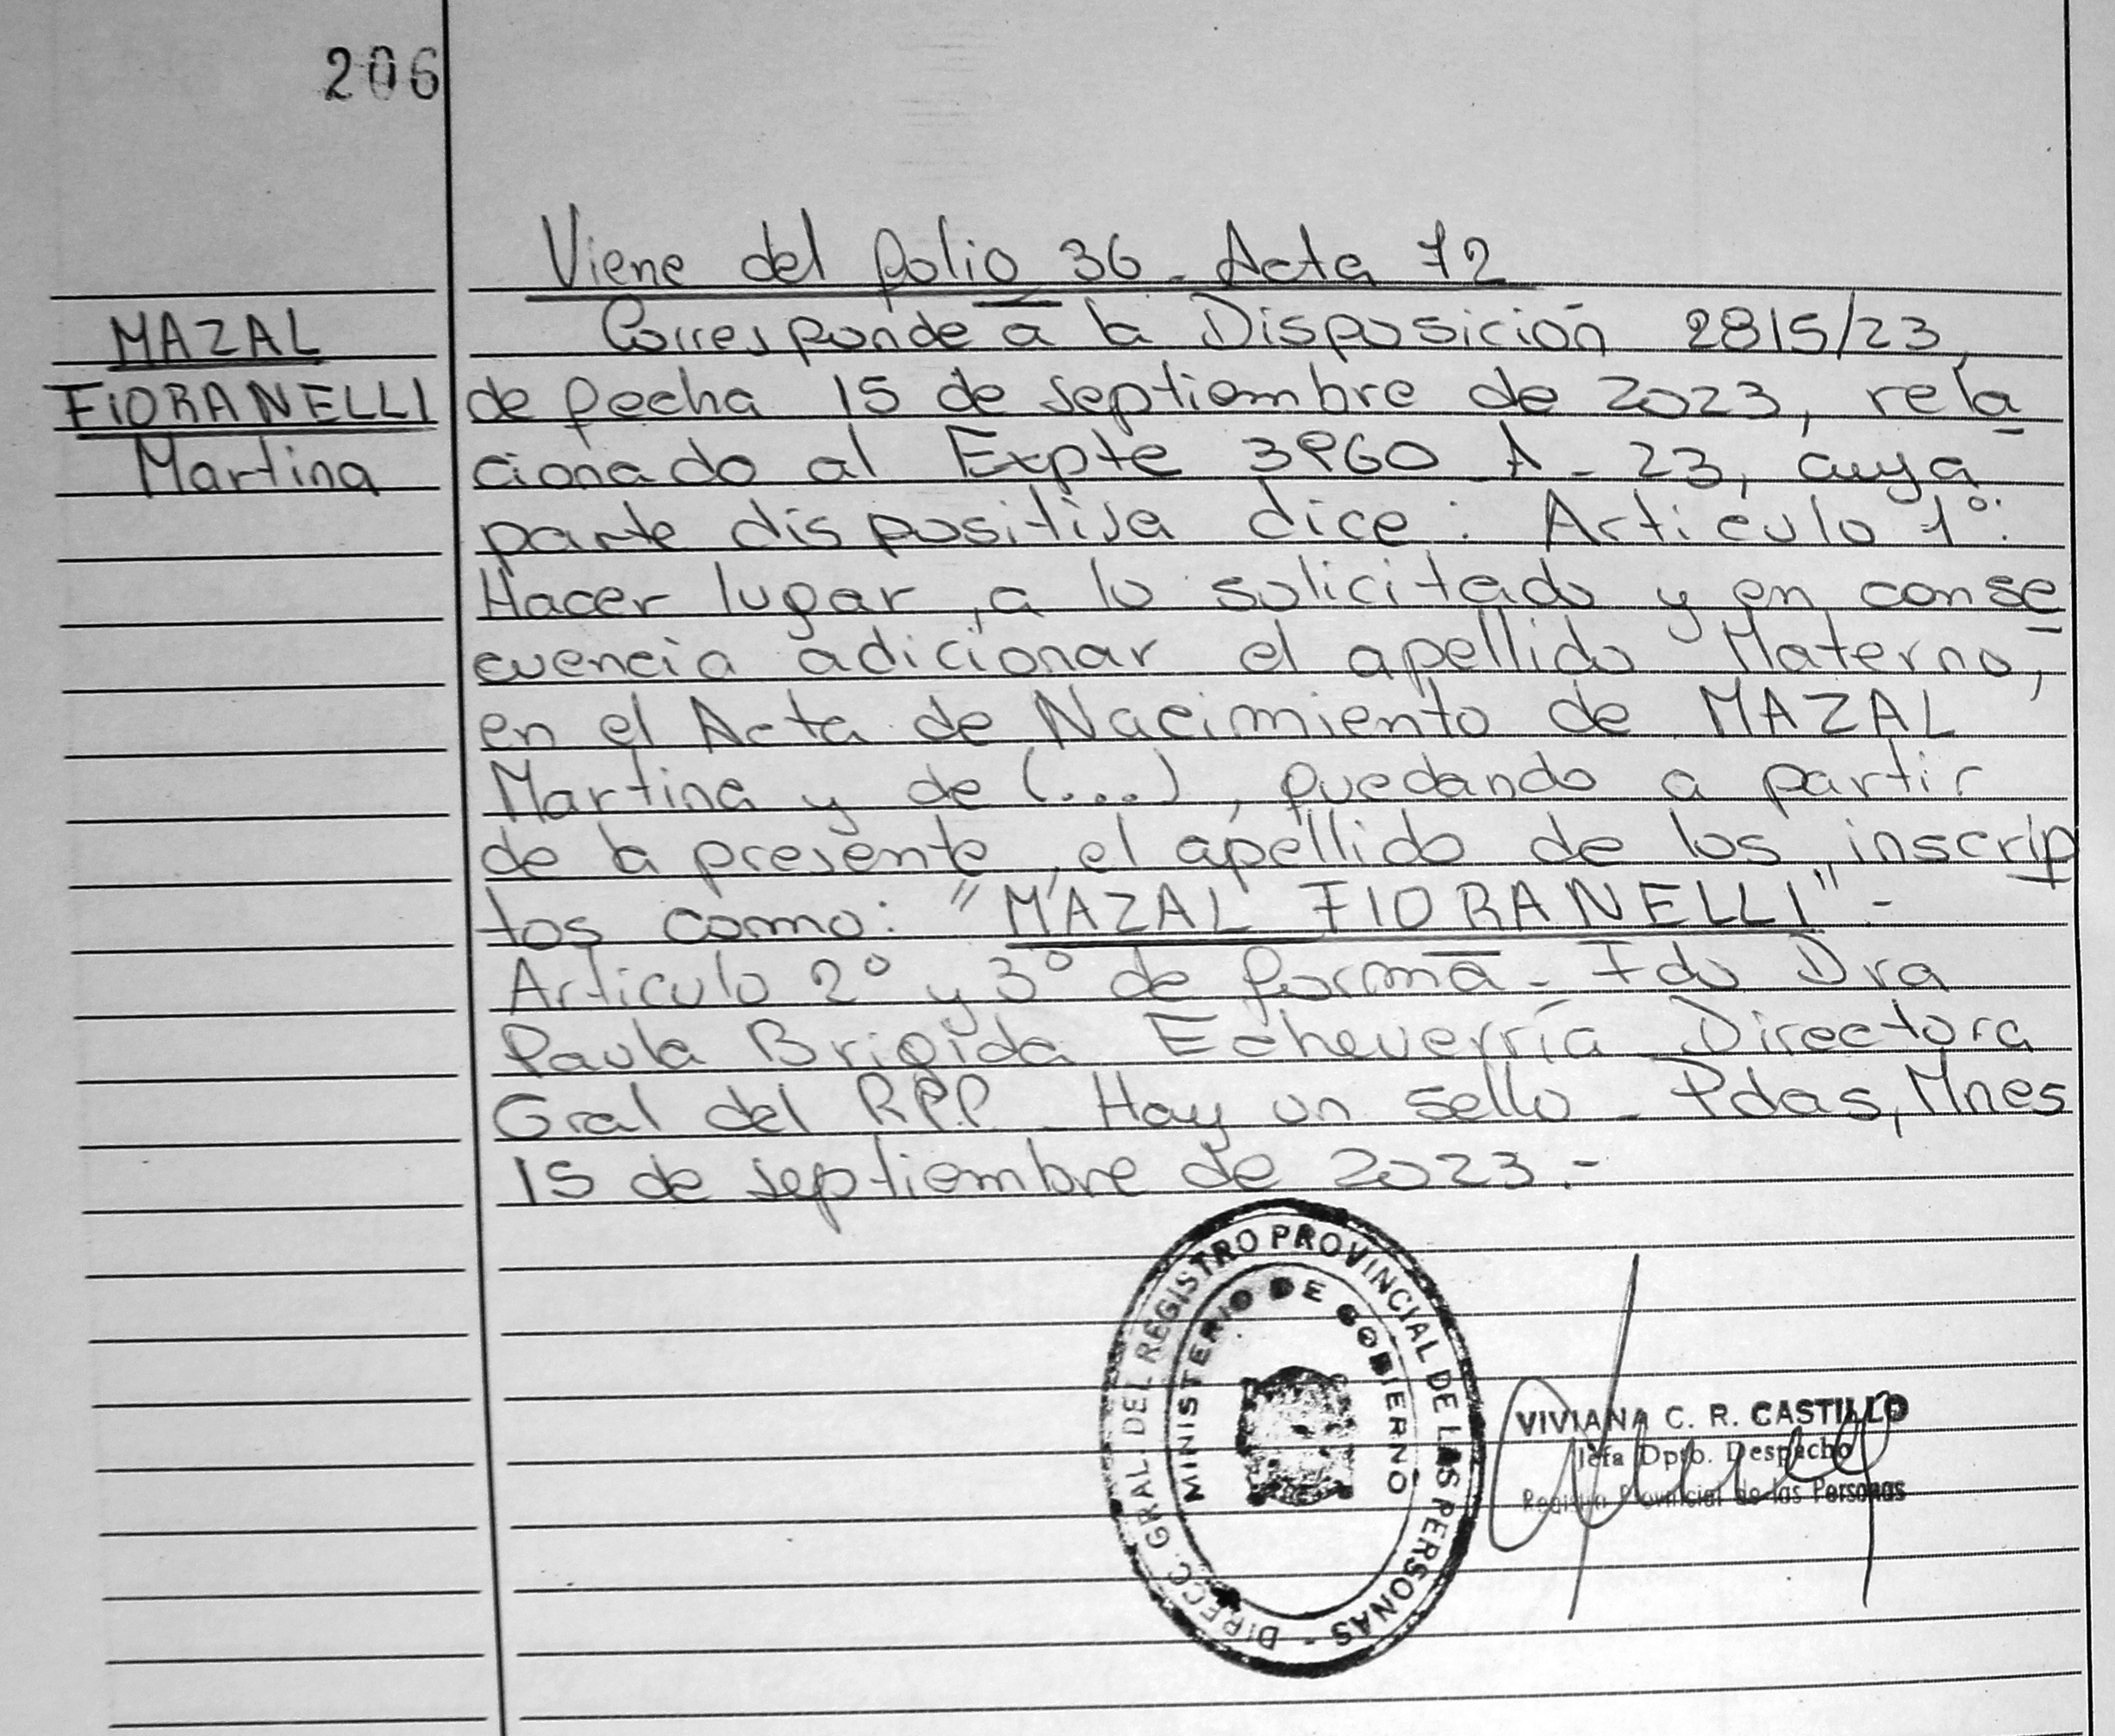 206
Viene del folio 36 - Acta 72
MAZAL
FIORANELLI
Martina
Corresponde a la Disposición 2815/23,
de fecha 15 de septiembre de 2023, rela
cionado al Expte 3960 A - 23, cuya
parte dispositiva dice: Articulo 1º:
Hacer lugar, a lo solicitado y en conse
cuencia adicionar el apellido Materno,
en el Acta de Nacimiento de MAZAL
Martina y de (...), quedando a partir
de la presente, el apellido de los inscrip
tos como: "MAZAL FIORANELLI" -
Articulo 2º y 3º de forma - Fdo Dra
Paula Brigida Echeverría Directora
Gral del RPP - Hay un sello - Pdas, Mnes
15 de septiembre de 2023.-
DIRECC. GRAL. DEL REGISTRO PROVINCIAL DE LAS PERSONAS -
MINISTERIO DE GOBIERNO
VIVIANA C. R. CASTILLO
Jefa Dpto. Despacho
Registro Provincial de las Personas